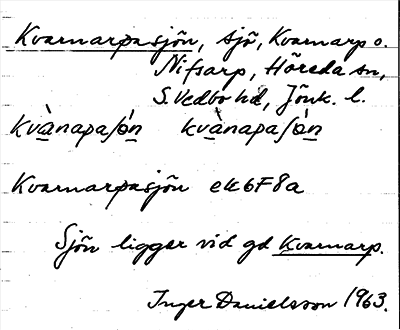 Kvarnarpasjön, sjö, Kvarnarp o.
Nifsarp, Höreda sn,
S. Vedbo hd, Jönk. l.
kvànapaʃón kvànapaʃòn
Kvarnarpasjön ek6F8a
Sjön ligger vid gd Kvarnarp.
Inger Danielsson 1963.